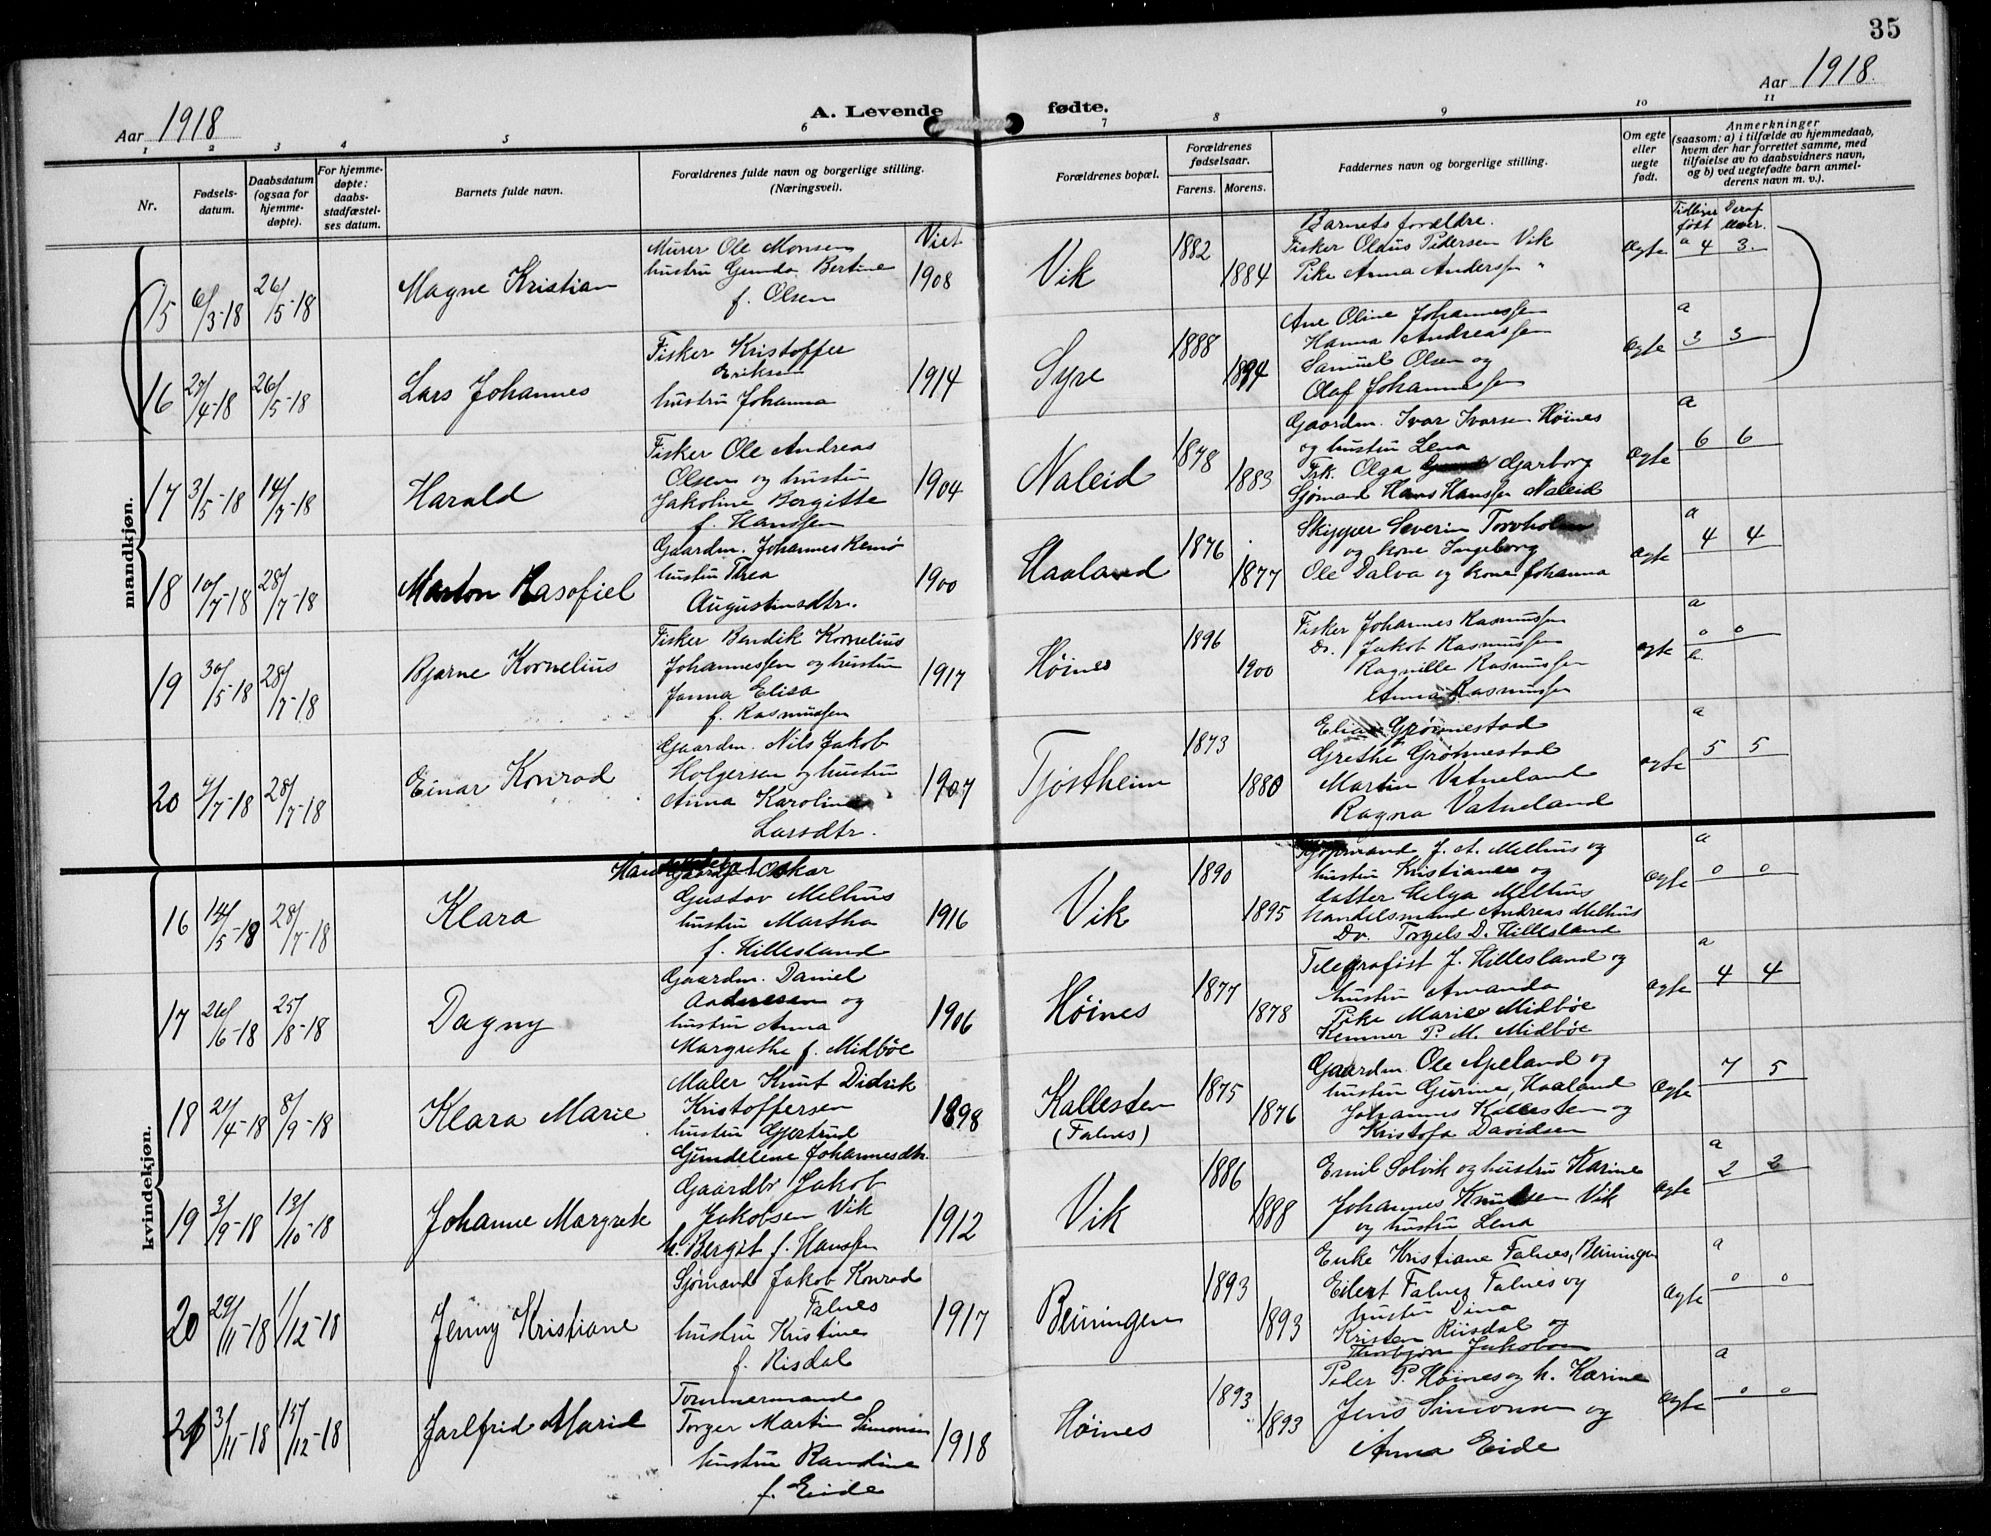 35
Aar 1918
A. Levende
fødte.
Aar 1918.
1 2 3 4 5 6 7 8 9 10 11
Nr.
Fødsels-
datum.
Daabsdatum
(ogsaa for
hjemme-
døpte).
For hjemme-
døpte:
daabs-
stadfæstel-
ses datum.
Barnets fulde navn.
Forældrenes fulde navn og borgerlige stilling.
(Næringsvei).
Forældrenes bopæl.
Forældrenes
fødselsaar.
Farens. Morens.
Faddernes navn og borgerlige stilling.
Om egte
eller
uegte
født.
Anmerkninger
(saasom: a) i tilfælde av hjemmedaab,
hvem der har forrettet samme, med
tilføielse av to daabsvidners navn,
og b) ved uegtefødte barn anmel-
derens navn m. v.).
Viet
Tidligere Deraf
født lever.
mandkjøn.
15 6/3-18 26/5-18 Magne Kristian
Murer Ole Monsen
hustru Gunda Bertine
f. Olsen
1908 Vik 1882 1884
Barnets forældre.
Fisker Olaus Pedersen Vik
Pike Anna Anderssen "
Ægte a 4 3.
16 27/4-18 26/5-18 Lars Johannes
Fisker Kristoffer
Eriksen
hustru Johanna
1914 Syre 1888 1894
Ane Oline Johannessen
Hanna Andreassen
Samuel Olsen og
Olaf Johannessen
Ægte a 3 3
17 3/5-18 14/7-18 Harald
Fisker Ole Andreas
Olsen og hustru
Jakoline Bergitte
f. Hanssen
1904 Naleid 1878 1883
Gaardm. Ivar Ivarsen Høines
og hustru Lena
Frk. Olga Garborg
Sjømand Hans Hanssen Naleid
Ægte a 6 6
18 10/7-18 28/7-18 Marton Rasofiel
Gaardm. Johannes Remø
hustru Thea
Augustinsdtr.
1900 Haaland 1876 1877
Skipper Severin Torvholm
og kone Ingeborg
Ole Dalva og kone Johanna
ægte a 4 4
19 30/5-18 28/7-18 Bjarne Kornelius
Fisker Bendik Kornelius
Johannessen og hustru
Janna Elisa
f. Rasmussen
1917 Høines 1896 1900
Fisker Johannes Rasmussen
Do. Jakob Rasmussen
Ragnille Rasmussen
Anna Rasmussen
ægte a 0 0
20 /7-18 28/7-18 Einar Konrad
Gaardm. Nils Jakob
Holgersen og hustru
Anna Karoline
Larsdtr.
1907 Tjøstheim 1873 1880
Elias Grønnestad
Grethe Grønnestad
Martin Vatneland
Ragna Vatneland
ægte a 5 5
kvindekjøn.
16 14/5-18 28/7-18 Klara
Oskar
Gustav Melhus
hustru Martha
f. Hillesland
1916 Vik 1890 1895
J. A. Melhus og
hustru Kristiane og
datter Helga Melhus
Handelsmand Andreas Melhus
Do. Torgels D. Hillesland
Ægte a 0 0
17 26/6-18 25/8-18 Dagny
Gaardm. Daniel
Andreesen og
hustru Anna
Margrethe f. Midbøe
1906 Høines 1877 1878
Telegrafist J. Hillesland og
hustru Amanda
Pike Marie Midbøe
Kemner P. M. Midbøe
Ægte a 4 4
18 21/4-18 8/9-18 Klara Marie
Maler Knut Didrik
Kristoffersen
hustru Gjertrud
Gundelene Johannesdtr.
1898 Kallesten
(Falnes)
1875 1876
Gaardm. Ole Apeland og
hustru Gurine, Haaland
Johannes Kallesten og
Kristofa Davidsen
Ægte 7 5
19 3/9-18 13/10-18 Johanne Margrete
Gaardbr Jakob
Jakobsen Vik
h. Bergit f. Hanssen
1912 Vik 1886 1888
Emil Solvik og hustru Karine
Johannes Knudsen Vik
og hustru Lena
Ægte a 2 2
20 29/11-18 1/12-18 Jenny Kristiane
Sjømand Jakob Konrad
Falnes
hustru Kristine
f. Risdal
1917 Beiningen 1893 1893
Enke Kristiane Falnes, Beiningen
Eilert Falnes Falnes og
hustru Dina
Kristen Riisdal og
Thorbjørn Jakobsen
Ægte a 0 0
21 3/11-18 15/12-18 Jarlfrid Marie
Tømmermand
Torger Martin Simonsen
hustru Randine
f. Eide
1918 Høines 1893 1893
Peder P. Høines og h. Karine
Jens Simonsen og
Anna Eide
Ægte a 0 0